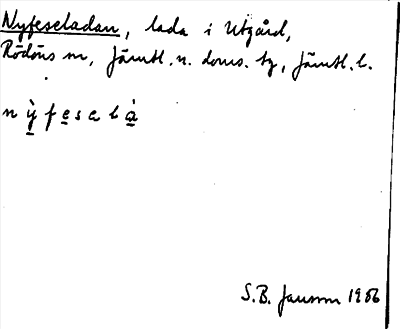 Nyfeseladan, lada i Utgård,
Rödöns sn, Jämtl. n. doms. tg, Jämtl. l.
n ỳ f e s e l à
S.B. Jansson 1956